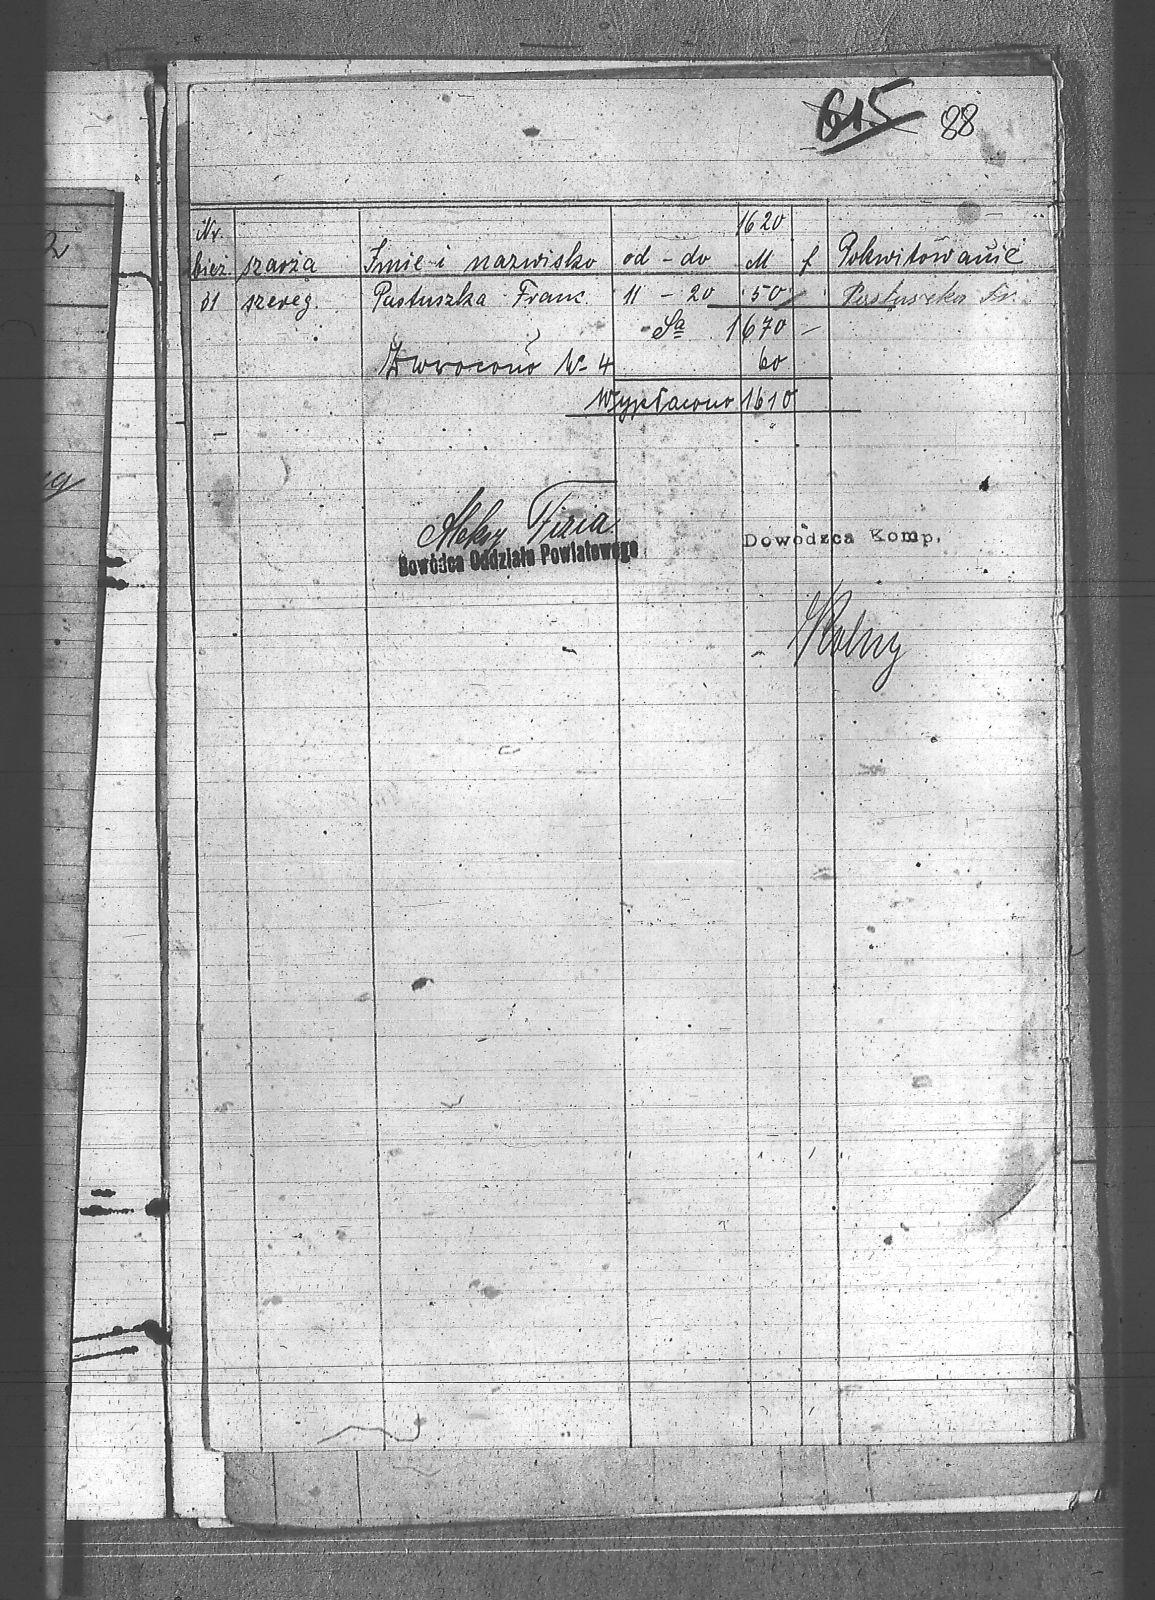 615 88
1620
Nr. bież szarża Imię i nazwisko od - do M f Pokwitowanie
31 szereg. Pastuszka Franc. 11 - 20 50 Pastuszka Fr.
Sa 1670 -
Zwrócono N-4 60
Wypłacono 1610
Fizia
Dowódca Oddziału Powiatowego
Dowódzca Komp.
Wolny